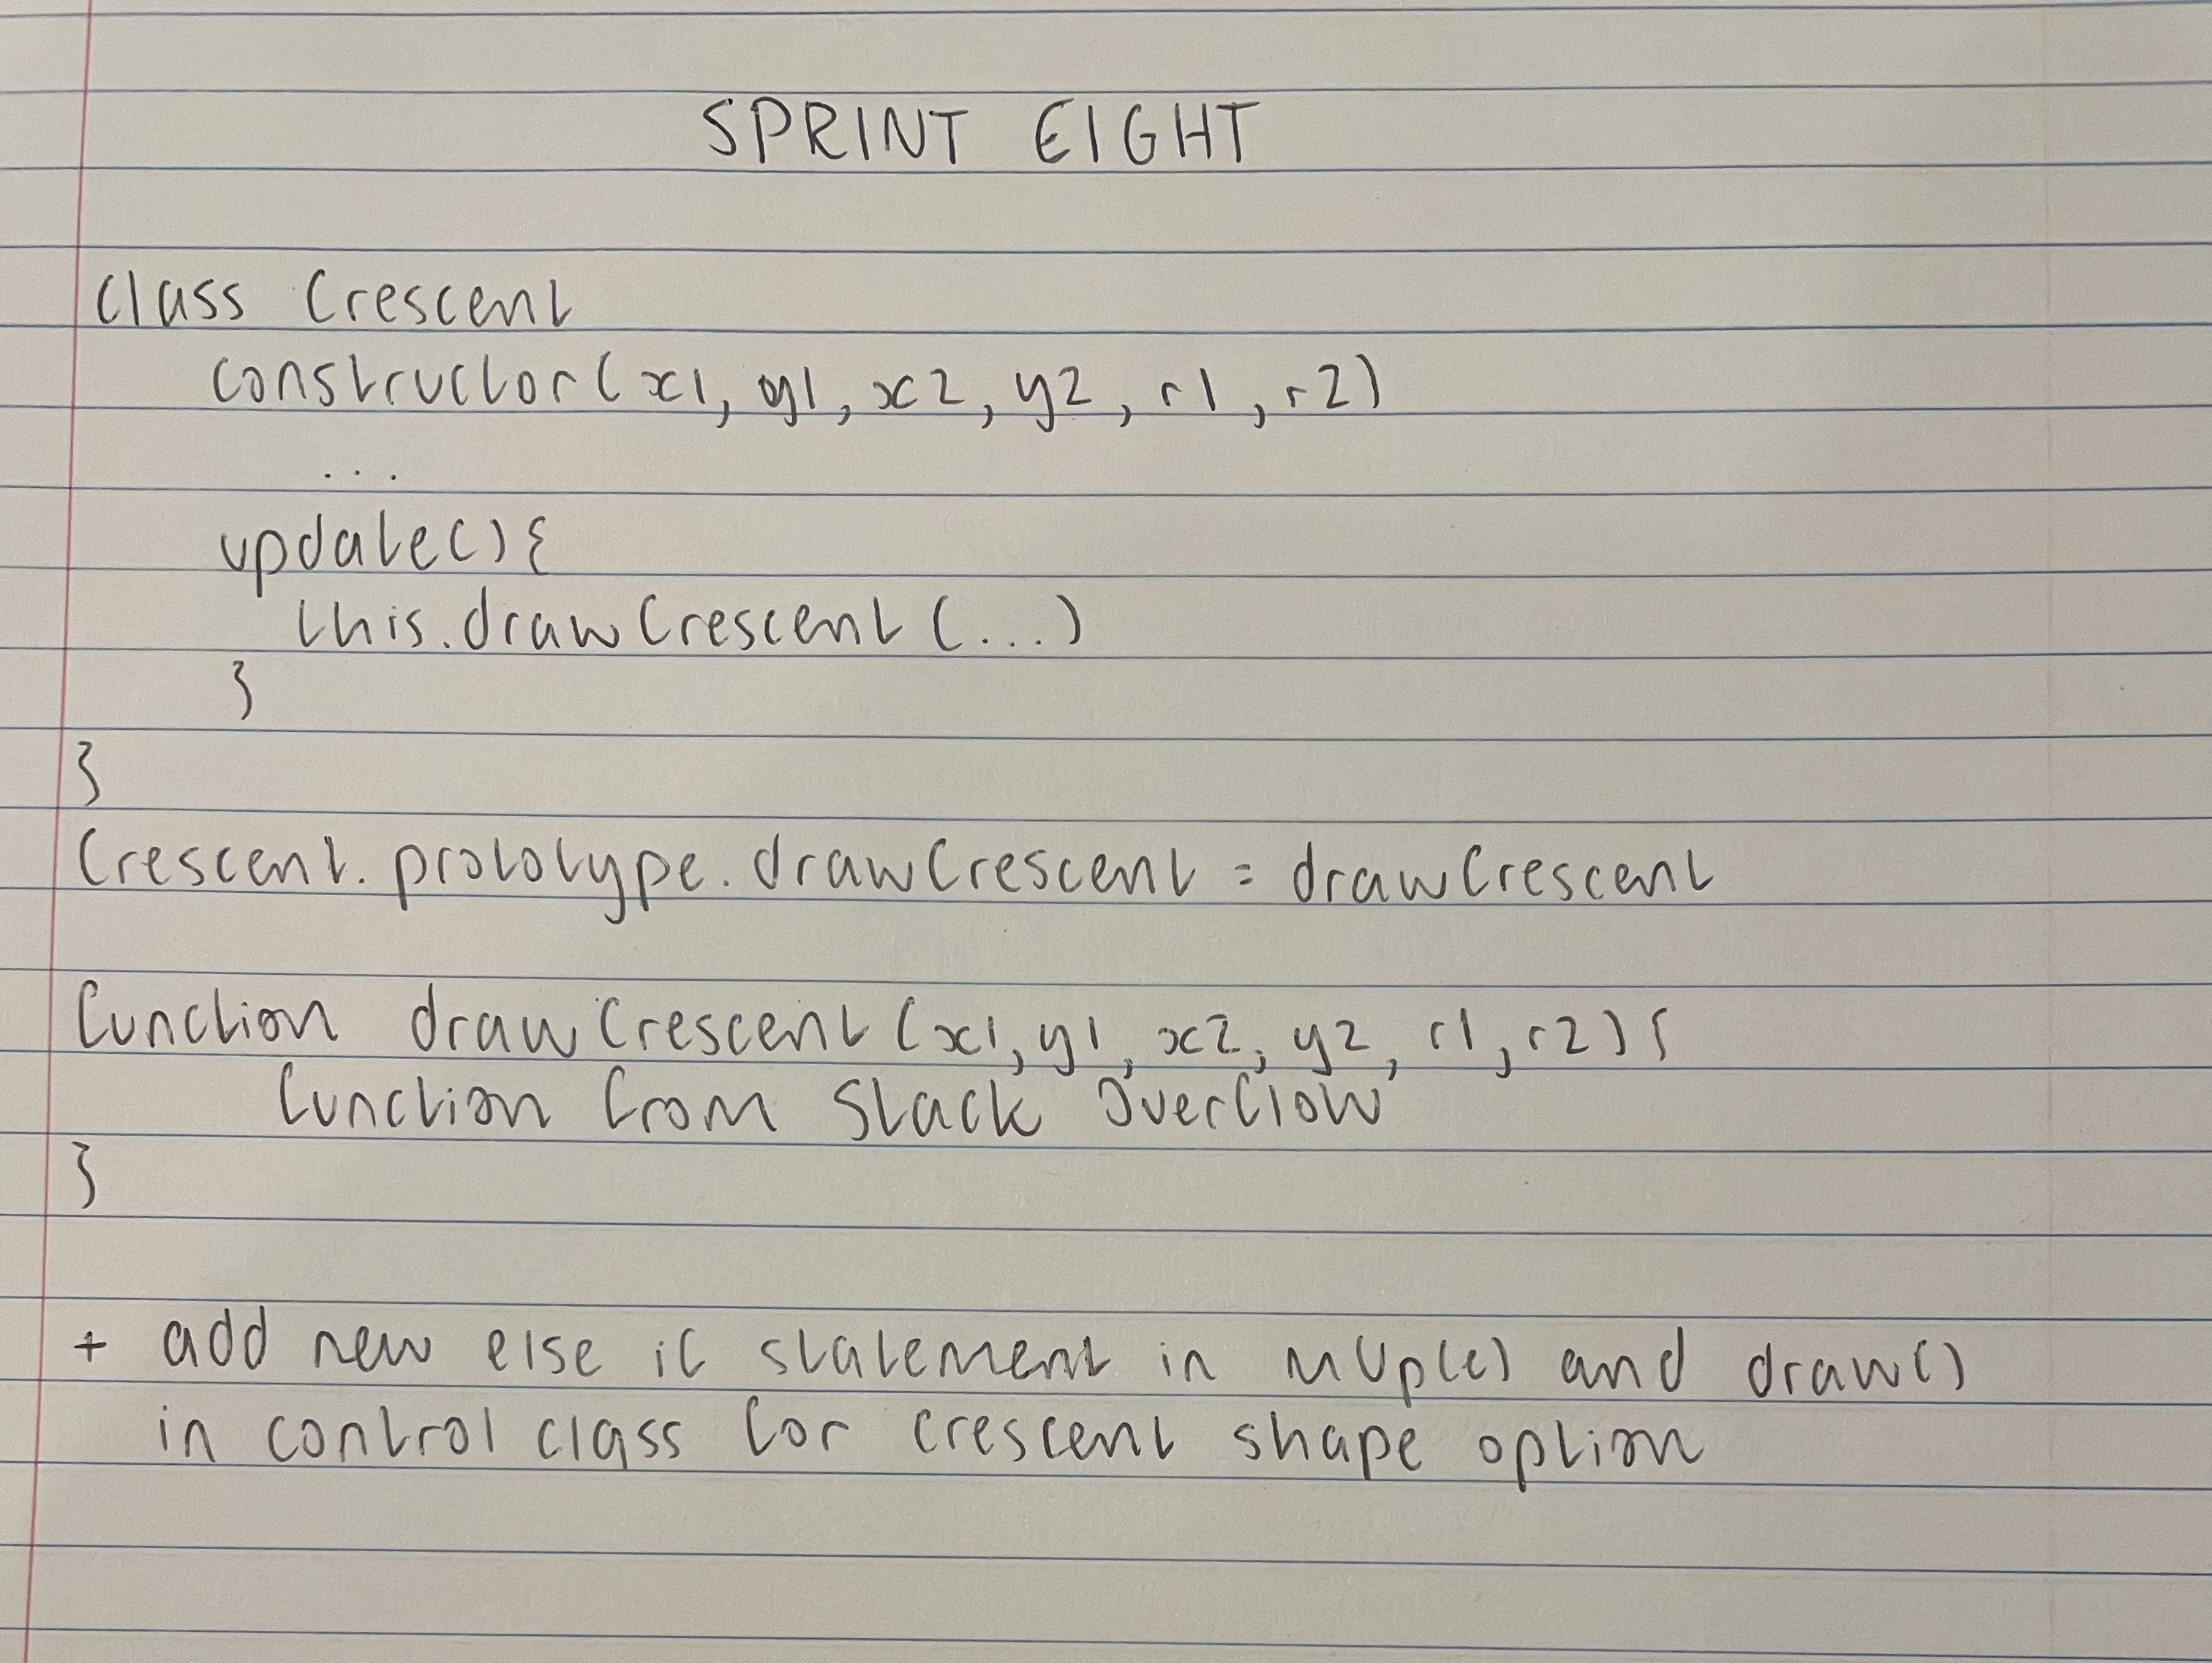 SPRINT EIGHT
class Crescent
constructor(x1, y1, x2, y2, r1, r2)
...
update(){
this.drawCrescent(...)
}
}
Crescent.prototype.drawCrescent = drawCrescent
function drawCrescent(x1, y1, x2, y2, r1, r2){
function from Stack Overflow
}
+ add new else if statement in mUp(e) and draw()
in control class for crescent shape option